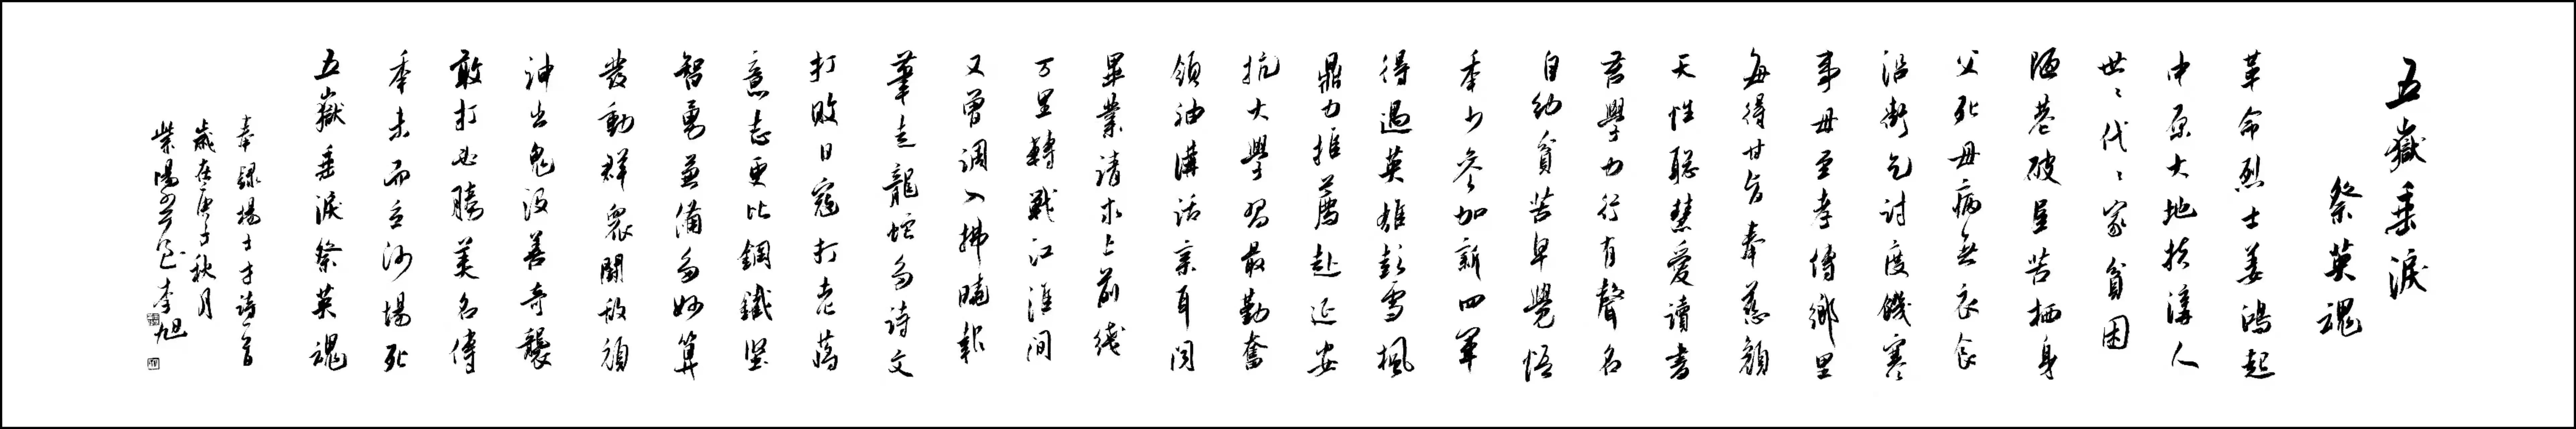 五嶽垂淚
祭英魂
革命烈士姜鴻起
中原大地扶溝人
世世代代家貧困
陋巷破屋苦栖身
父死母病無衣食
沿街乞討度饑寒
事母至孝傳鄉里
每得甘旨奉慈顏
天性聰慧愛讀書
苦學力行有聲名
自幼貧苦早覺悟
年少參加新四軍
得遇英雄彭雪楓
鼎力推薦赴延安
抗大學習最勤奮
領袖講話親耳聞
畢業請求上前綫
万里轉戰江淮間
又曾調入拂曉報
筆走龍蛇多詩文
打敗日寇打老蔣
意志更比鋼鐵堅
智勇兼備多妙算
發動群衆鬭敵頑
神出鬼没善奇襲
敢打必勝美名傳
年未而立沙場死
五嶽垂淚祭英魂
奉録楊士才詩一首
歲在庚子秋月
柴陽 李旭